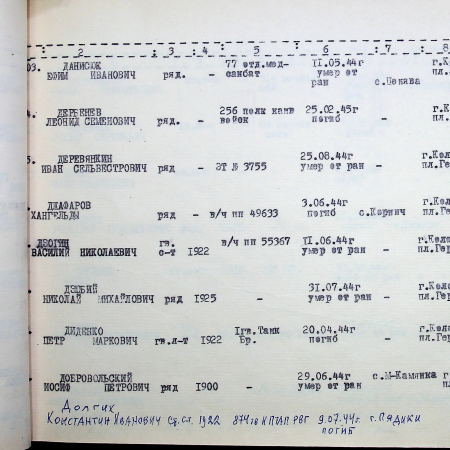 2 3 4 5 6 7 8
03. ДАНИСЮК 77 отд.мед- 11.05.44г г.К
ЕФИМ ИВАНОВИЧ ряд. - санбат умер от - пл.
ран с.
4. ДЕРБЕНЕВ 256 полк конв 25.02.45г г.Кол
ЛЕОНИД СЕМЕНОВИЧ ряд. - войск погиб - пл.
5. ДЕРЕВЯНКИН 25.08.44г г.Кол
ИВАН СЕЛЬВЕСТРОВИЧ ряд - ЭГ № 3755 умер от ран - пл.Ге
ДЖАФАРОВ 3.06.44г г.Кол
ХАНГЕЛЬДЫ ряд - в/ч пп 49633 погиб с.Корнич пл.Гер
ДЗЮГИН гв. в/ч пп 55367 11.06.44г г.Коло
ВАСИЛИЙ НИКОЛАЕВИЧ с-т 1922 умер от ран - пл.Гер
ДЗЮБИЙ 31.07.44г г.Коло
НИКОЛАЙ МИХАЙЛОВИЧ ряд 1925 - умер от ран - пл.Гер
ДИДЕНКО 1гв.Танк 20.04.44г г.Коло
ПЕТР МАРКОВИЧ гв.л-т 1922 Бр. погиб - пл.Гер
ДОБРОВОЛЬСКИЙ 29.06.44г с.М-Камянка г.К
ИОСИФ ПЕТРОВИЧ ряд 1900 - умер от ран пл.
Долгих
КОНСТАНТИН ИВАНОВИЧ Ст.с. 1922 874 ИПТАП РВГ 9.07.44г. г. ПЯДИКИ
ПОГИБ